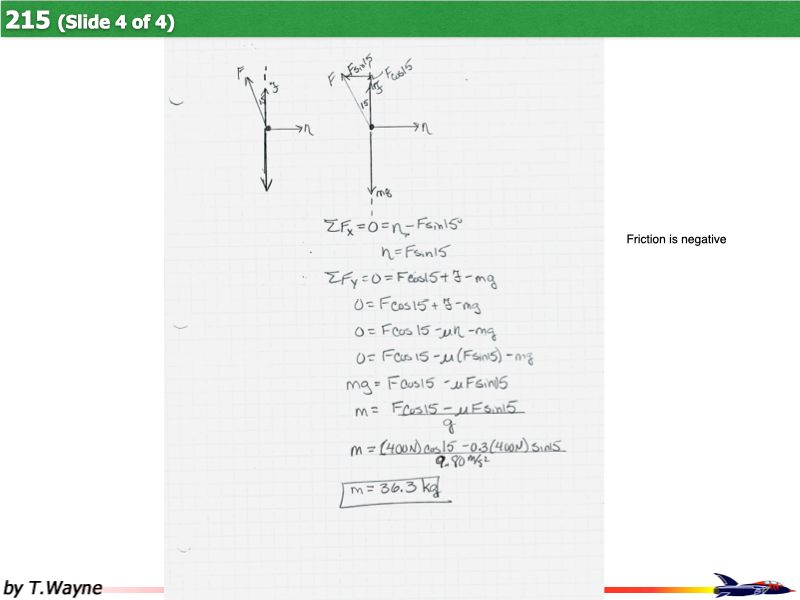 215 (Slide 4 of 4)
F Fsin15 Fcos15
F 15 15
n n
mg
ΣFx=0=n-Fsin15°
n=Fsin15
ΣFy=0=Fcos15+𝓕-mg
0=Fcos15+𝓕-mg
0=Fcos15-μn-mg
0=Fcos15-μ(Fsin15)-mg
mg=Fcos15-μFsin15
m= Fcos15-μFsin15
g
m=(400N)cos15-0.3(400N)sin15
9.80 m/s²
m=36.3 kg
Friction is negative
by T.Wayne